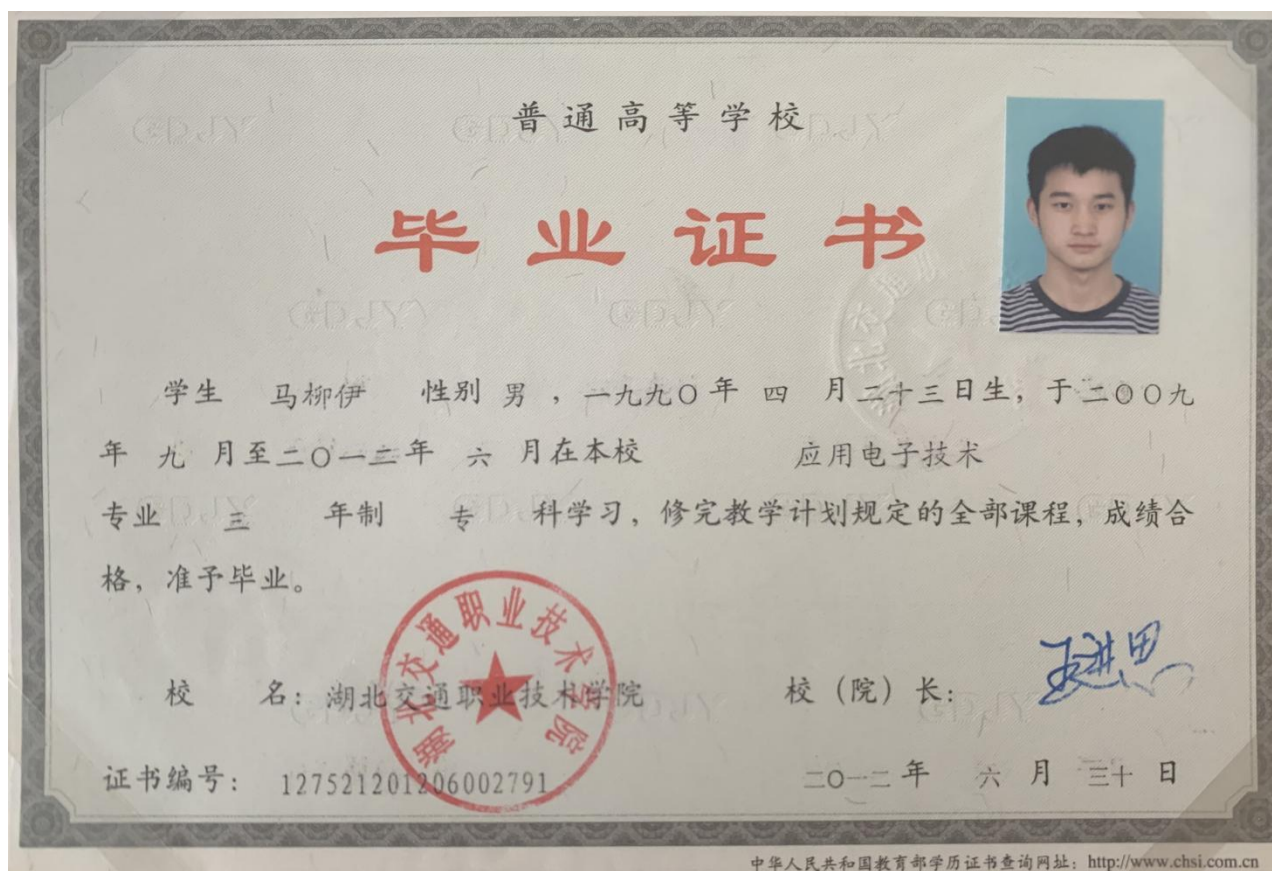 普通高等学校
毕业证书
学生 马柳伊 性别 男 ，一九九〇年 四 月二十三日生，于二〇〇九
年 九 月至二〇一二年 六 月在本校 应用电子技术
专业 三 年制 专 科学习，修完教学计划规定的全部课程，成绩合
格，准予毕业。
校 名：湖北交通职业技术学院 校（院）长：王进思
湖北交通职业技术学院
证书编号：127521201206002791 二〇一二年 六 月 三十 日
中华人民共和国教育部学历证书查询网址：http://www.chsi.com.cn